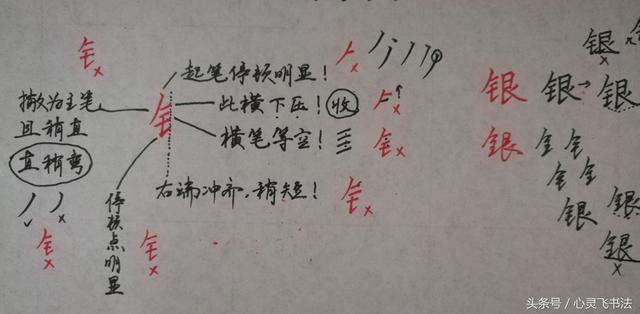 钅
起笔停顿明显！
撇为主笔
且稍直
直稍弯
钅
此横下压！收
横笔等空！
右端冲齐，稍短！
停顿点明显
钅
钅
钅
钅
银 银 银
银 钅 钅
钅 钅
银 银
银
银
头条号／心灵飞书法